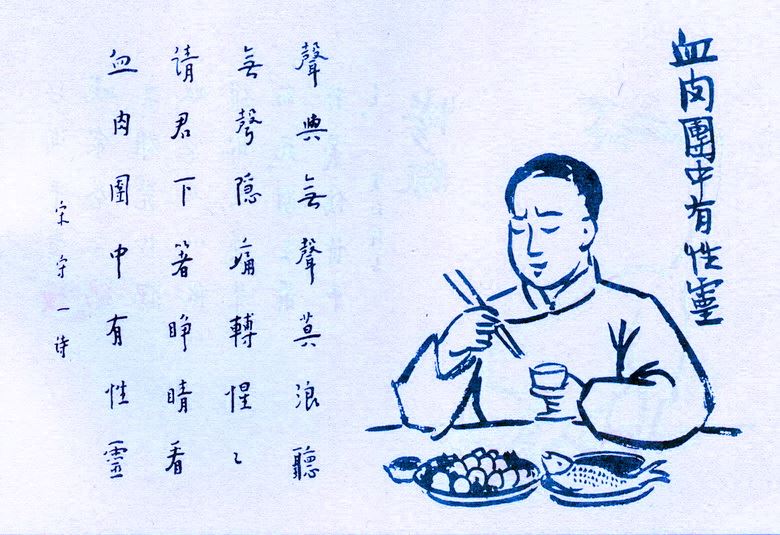 血肉團中有性靈
聲與無聲莫浪聽
無聲隱痛轉惺〻
请君下箸睜睛看
血肉團中有性靈
宋守一诗